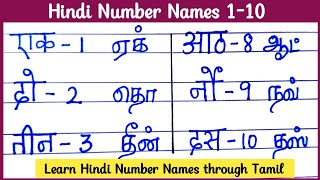 Hindi Number Names 1-10
एक - 1 ஏக் आठ - 8 ஆட்
दो - 2 தொ नौ - 9 நவ்
तीन - 3 தீன் दस - 10 தஸ்
Learn Hindi Number Names through Tamil